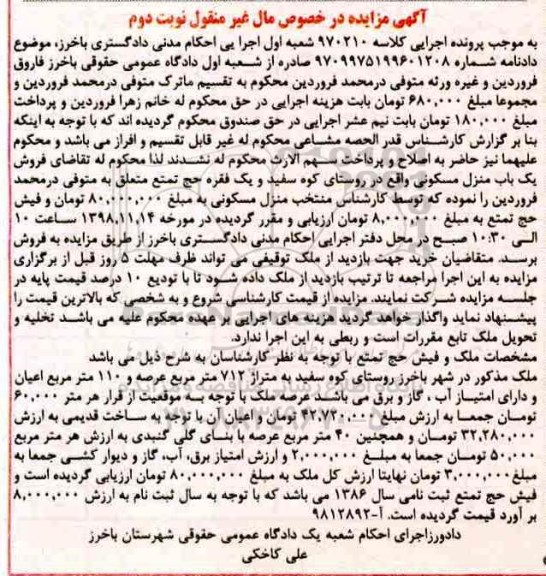 آگهی مزایده در خصوص مال غیر منقول نوبت دوم
به موجب پرونده اجرایی کلاسه ۹۷۰۲۱۰ شعبه اول اجرا یی احکام مدنی دادگستری باخرز، موضوع
دادنامه شماره ۹۷۰۹۹۷۵۱۹۹۶۰۱۲۰۸ صادره از شعبه اول دادگاه عمومی حقوقی باخرز فاروق
فروردین و غیره ورثه متوفی درمحمد فروردین محکوم به تقسیم ماترک متوفی درمحمد فروردین و
مجموعا مبلغ ۶۸۰,۰۰۰ تومان بابت هزینه اجرایی در حق محکوم له خانم زهرا فروردین و پرداخت
مبلغ ۱۸۰,۰۰۰ تومان بابت نیم عشر اجرایی در حق صندوق محکوم گردیده اند که با توجه به اینکه
بنا بر گزارش کارشناس قدر الحصه مشاعی محکوم له غیر قابل تقسیم و افراز می باشد و محکوم
علیهما نیز حاضر به اصلاح و پرداخت سهم الارث محکوم له نشدند لذا محکوم له تقاضای فروش
یک باب منزل مسکونی واقع در روستای کوه سفید و یک فقره حج تمتع متعلق به متوفی درمحمد
فروردین را نموده که توسط کارشناس منتخب منزل مسکونی به مبلغ ۸۰,۰۰۰,۰۰۰ تومان و فیش
حج تمتع به مبلغ ۸,۰۰۰,۰۰۰ تومان ارزیابی و مقرر گردیده در مورخه ۱۳۹۸,۱۱,۱۴ ساعت ۱۰
الی ۱۰:۳۰ صبح در محل دفتر اجرایی احکام مدنی دادگستری باخرز از طریق مزایده به فروش
برسد. متقاضیان خرید جهت بازدید از ملک توقیفی می تواند ظرف مهلت ۵ روز قبل از برگزاری
مزایده به این اجرا مراجعه تا ترتیب بازدید از ملک داده شود تا با تودیع ۱۰ درصد قیمت پایه در
جلسه مزایده شرکت نمایند. مزایده از قیمت کارشناسی شروع و به شخصی که بالاترین قیمت را
پیشنهاد نماید واگذار خواهد گردید. هزینه های اجرایی بر عهده محکوم علیه می باشد تخلیه و
تحویل ملک تابع مقررات است و ربطی به این اجرا ندارد.
مشخصات ملک و فیش حج تمتع با توجه به نظر کارشناسان به شرح ذیل می باشد
ملک مذکور در شهر باخرز روستای کوه سفید به متراژ ۷۱۲ متر مربع عرصه و ۱۱۰ متر مربع اعیان
و دارای امتیاز آب ، گاز و برق می باشد عرصه ملک با توجه به موقعیت از قرار هر متر ۶۰,۰۰۰
تومان جمعا به ارزش مبلغ ۴۲,۷۲۰,۰۰۰ تومان و اعیان آن با توجه به ساخت قدیمی به ارزش
۳۲,۲۸۰,۰۰۰ تومان و همچنین ۴۰ متر مربع عرصه با بنای گلی گنبدی به ارزش هر متر مربع
۵۰,۰۰۰ تومان جمعا به مبلغ ۲,۰۰۰,۰۰۰ و ارزش امتیاز برق، آب، گاز و دیوار کشی جمعا به
مبلغ ۳,۰۰۰,۰۰۰ تومان نهایتا ارزش کل ملک به مبلغ ۸۰,۰۰۰,۰۰۰ تومان ارزیابی گردیده است و
فیش حج تمتع ثبت نامی سال ۱۳۸۶ می باشد که با توجه به سال ثبت نام به ارزش ۸,۰۰۰,۰۰۰
بر آورد قیمت گردیده است. آ-۹۸۱۲۸۹۲
دادورزاجرای احکام شعبه یک دادگاه عمومی حقوقی شهرستان باخرز
علی کاخکی